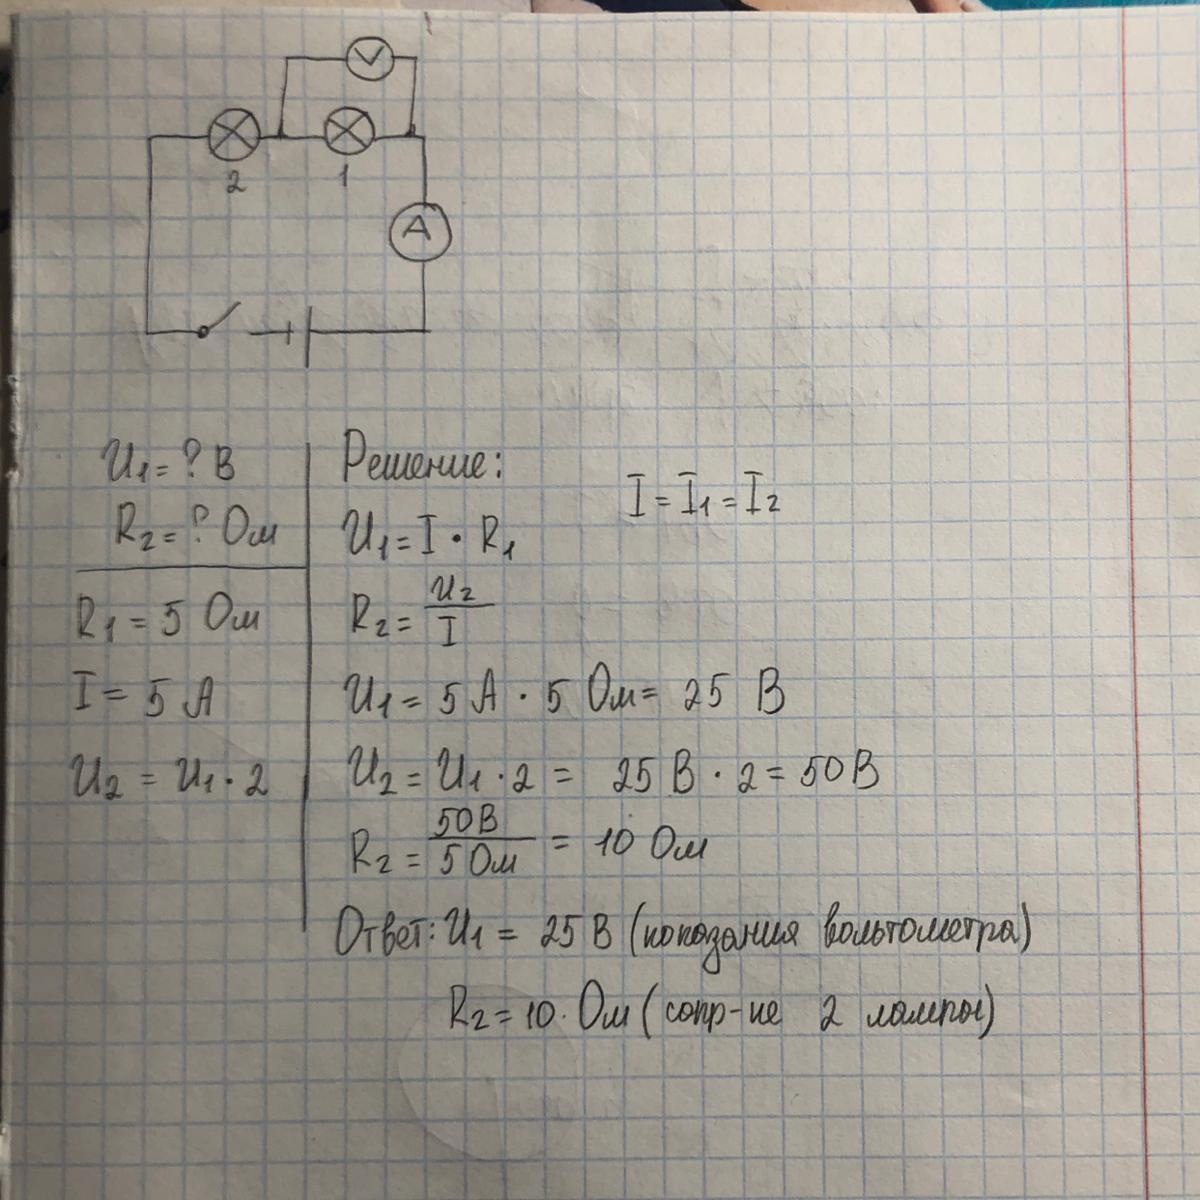 V
2 1
A
U₁ = ? В
R₂ = ? Ом
R₁ = 5 Ом
I = 5 А
U₂ = U₁ · 2
Решение:
I = I₁ = I₂
U₁ = I · R₁
R₂ = U₂ / I
U₁ = 5 А · 5 Ом = 25 В
U₂ = U₁ · 2 = 25 В · 2 = 50 В
R₂ = 50 В / 5 Ом = 10 Ом
Ответ: U₁ = 25 В (показания вольтометра)
R₂ = 10 Ом (сопр-ие 2 лампы)